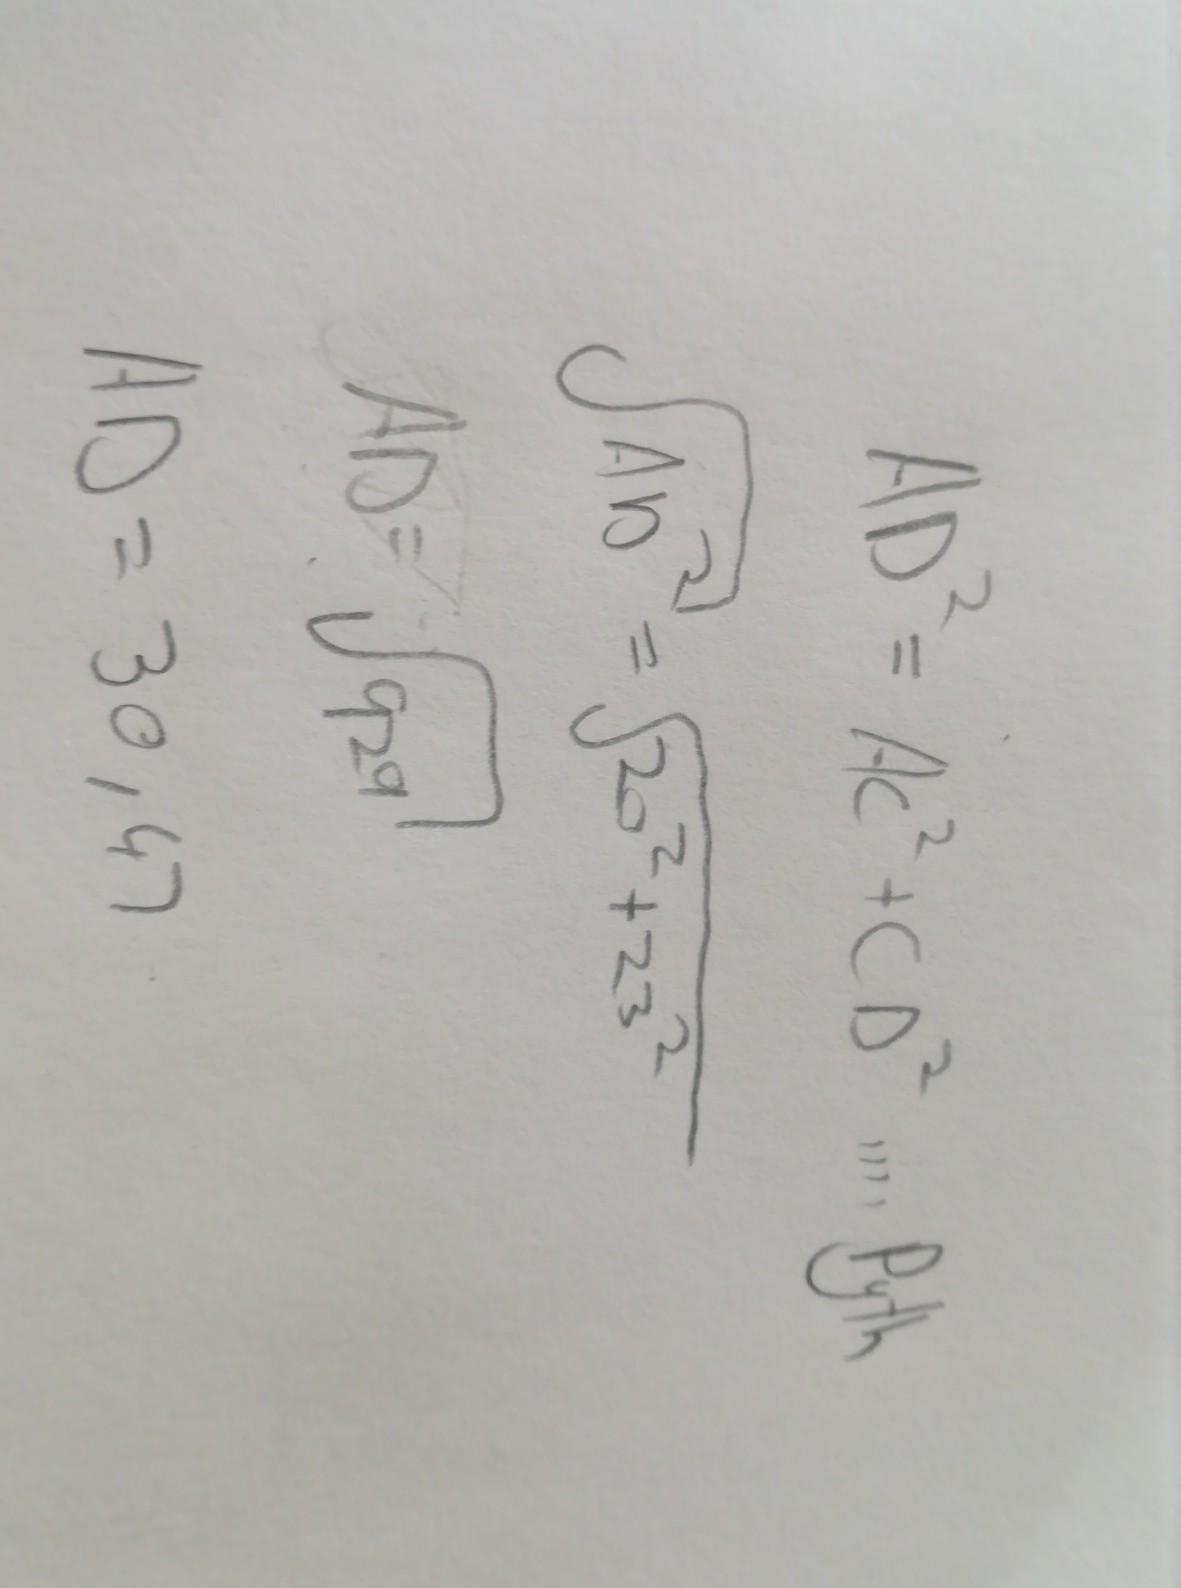 AD² = AC² + CD² .... Pyth
√AD² = √20² + 23²
AD = √929
AD = 30,47